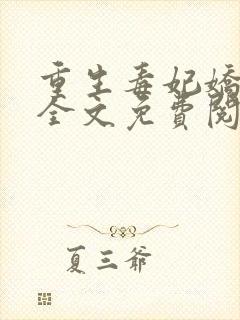 重生毒妃嬌
全文免費閱
夏三爺